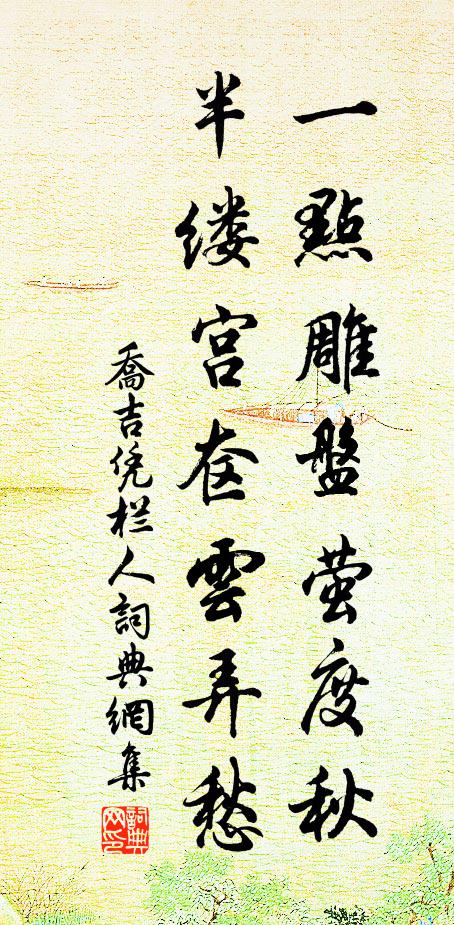 一點雕盤萤度秋
半缕宫奁雲弄愁
喬吉凭栏人詞典網集
詞典
网印